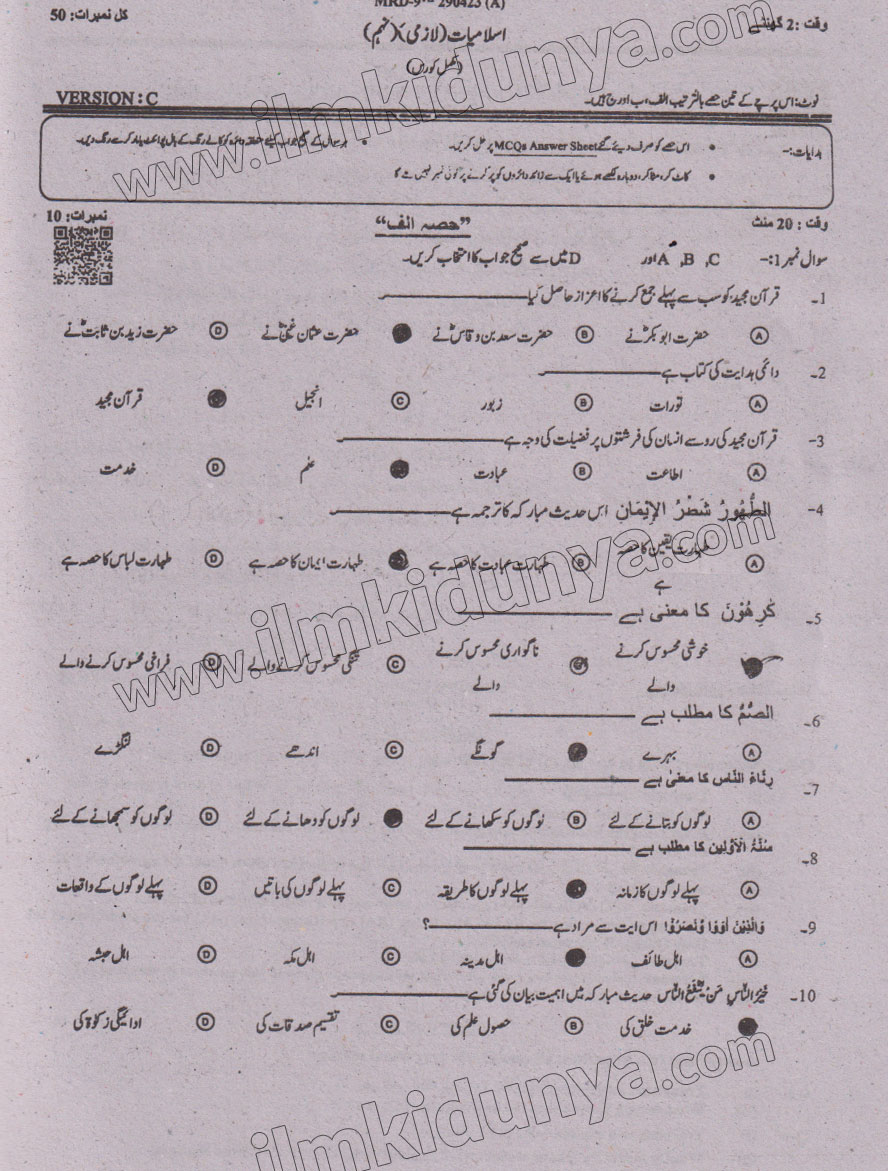 MRD-9th- 290423 (A)
وقت :2 گھنٹے اسلامیات (لازمی) (نہم) کل نمبرات: 50
(مکمل کورس)
نوٹ: اس پرچے کے تین حصے بالترتیب الف، ب اور ج ہیں۔ VERSION : C
ہدایات:- • اس حصے کو صرف دیئے گئے MCQs Answer Sheet پر حل کریں۔ • ہر سوال کے صحیح جواب کیلئے متعلقہ دائرہ کو کالے رنگ کے بال پوائنٹ یا مارکر سے رنگ دیں۔
• کاٹ کر، مٹا کر، دوبارہ لکھے ہوئے یا ایک سے زائد دائروں کو پر کرنے پر کوئی نمبر نہیں ملے گا
وقت : 20 منٹ "حصہ الف" نمبرات: 10
سوال نمبر 1:- A ,B ,C اور D میں سے صحیح جواب کا انتخاب کریں۔
1۔ قرآن مجید کو سب سے پہلے جمع کرنے کا اعزاز حاصل کیا
(A) حضرت ابو بکرؓ نے (B) حضرت سعد بن وقاصؓ نے حضرت عثمان غنیؓ نے (D) حضرت زید بن ثابتؓ نے
2۔ دائمی ہدایت کی کتاب ہے
(A) تورات (B) زبور (C) انجیل قرآن مجید
3- قرآن مجید کی رو سے انسان کی فرشتوں پر فضیلت کی وجہ ہے
(A) اطاعت (B) عبادت علم (D) خدمت
4- الطُّهُورُ شَطْرُ الإِيْمَانِ اس حدیث مبارکہ کا ترجمہ ہے
(A) طہارت یقین کا حصہ ہے (B) طہارت عبادت کا حصہ ہے طہارت ایمان کا حصہ ہے (D) طہارت لباس کا حصہ ہے
5۔ كٰرِهُوْنَ کا معنی ہے
خوشی محسوس کرنے والے (B) ناگواری محسوس کرنے والے (C) تنگی محسوس کرنے والے (D) فراخی محسوس کرنے والے
6۔ الصُّمُّ کا مطلب ہے
(A) بہرے گونگے (C) اندھے (D) لنگڑے
7۔ رِئَاءَ النَّاسِ کا معنیٰ ہے
(A) لوگوں کو بتانے کے لئے (B) لوگوں کو سکھانے کے لئے لوگوں کو دھانے کے لئے (D) لوگوں کو سمجھانے کے لئے
8۔ سُنَّۃُ الْاَوَّلِیْنَ کا مطلب ہے
(A) پہلے لوگوں کا زمانہ پہلے لوگوں کا طریقہ (C) پہلے لوگوں کی باتیں (D) پہلے لوگوں کے واقعات
9۔ وَالَّذِیْنَ اٰوَوْا وَّنَصَرُوْا اس ایت سے مراد ہے ؟
(A) اہل طائف اہل مدینہ (C) اہل مکہ (D) اہل حبشہ
10۔ خَيْرُ النَّاسِ مَنْ يَّنْفَعُ النَّاسَ حدیث مبارکہ میں اہمیت بیان کی گئی ہے
خدمت خلق کی (B) حصول علم کی (C) تقسیم صدقات کی (D) ادائیگی زکوٰۃ کی
www.ilmkidunya.com
www.ilmkidunya.com
ilmkidunya.com